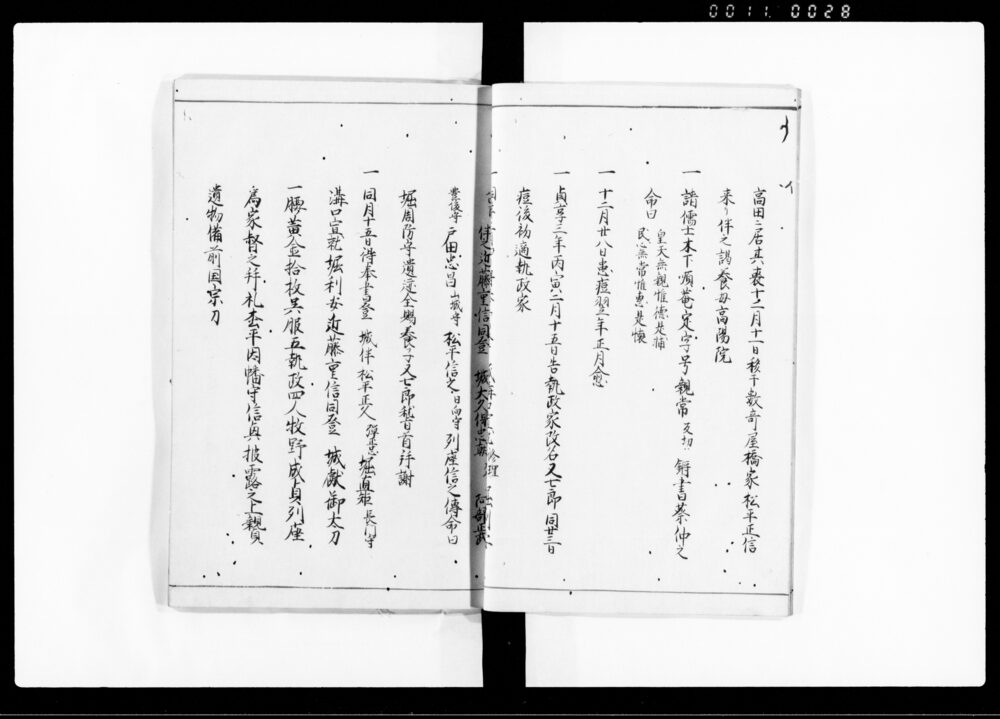 0011 0028
高田ニ居其喪十二月十一日移于数奇屋橋家松平正信
来リ伴之謁養母高陽院
一 請儒士木下順菴定字号親常及切 得書蔡仲之
命曰 皇天無親惟徳是輔
民心無常惟恵是懐
一 十二月廿八日患痘翌年正月愈
一 貞享三年丙寅二月十五日告執政家改名又七郎同廿三日
痘後初適執政家
伴之近藤重信同登 城大久保忠 阿部
豊後守戸田忠昌山城守松平信之日向守列座信之傳命曰
堀周防守遺淂全賜養子又七郎稽首拝謝
一 同月十五日待奉書登 城伴松平正久弾正忠堀直矩長門守
溝口宣就堀利 近藤重信同登 城献御太刀
一腰黄金拾枚呉服五執政四人牧野成貞列座
為家督之拝礼松平因幡守信興披露之上親見
遺物備前国宗刀